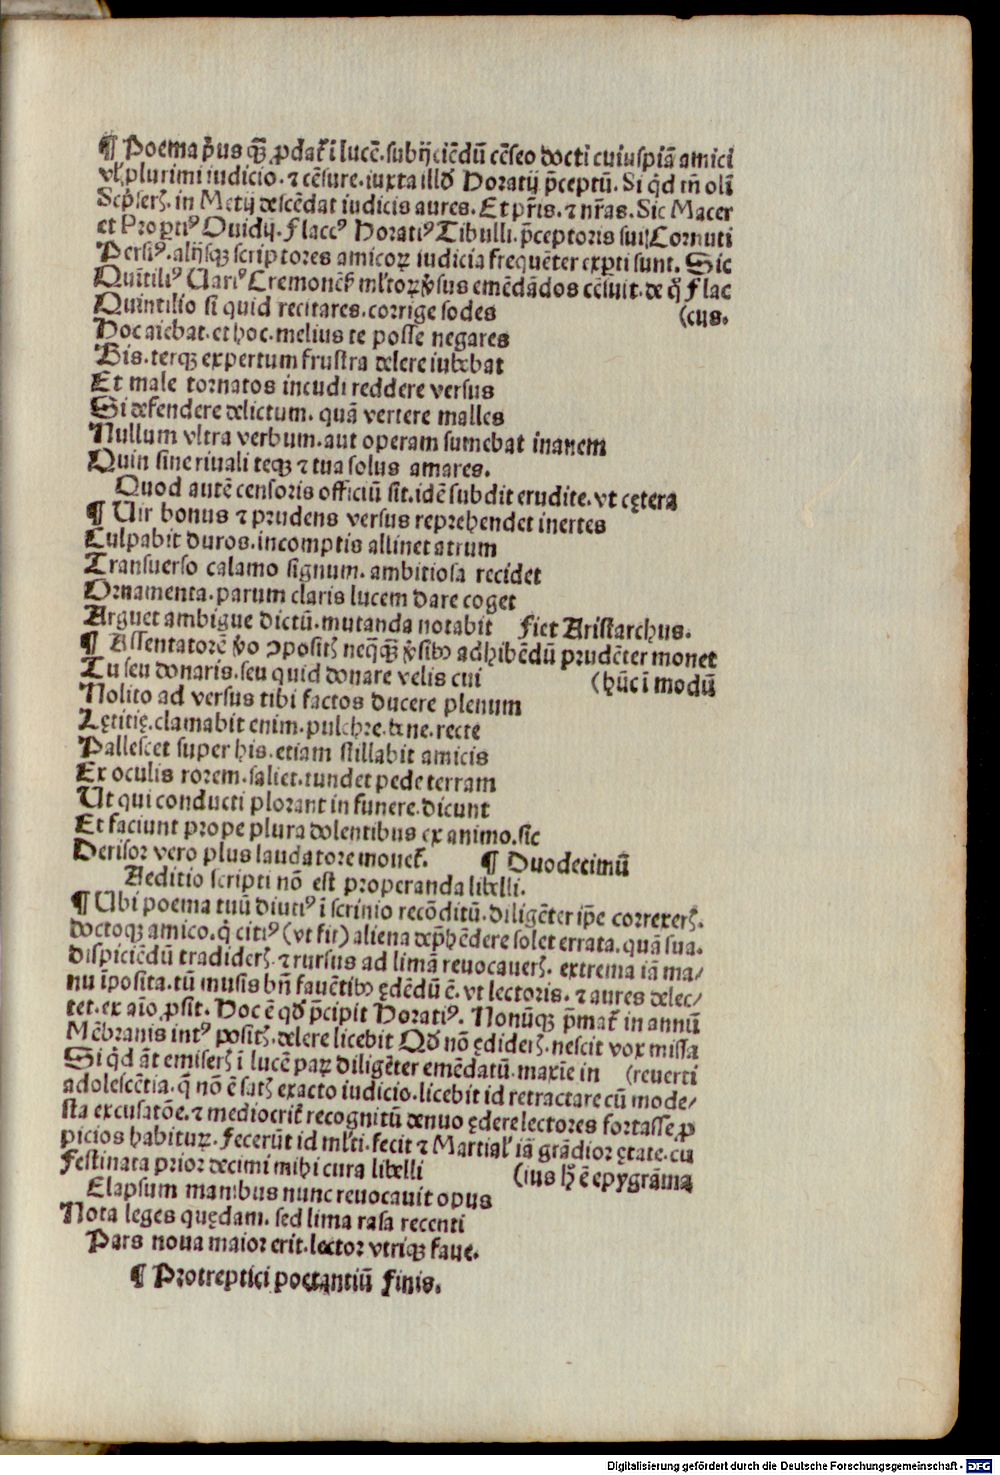 ¶ Poema pͥus qͣꝫ ꝓdat᷑ ĩ lucẽ. subijciẽdũ cẽseo docti cuiuspiã amici
vĺ plurimi iudicio. ⁊ cẽsure. iuxta illd̕ Horatij p̃ceptũ. Si qͥd tñ olĩ
Scp̕serꝭ. in Metij descẽdat iudicis aures. Et pr̃is. ⁊ nr̃as. Sic Macer
et Propertiꝰ Ouidij. Flaccꝰ Horatiꝰ Tibulli. p̃ceptoris sui Cornuti
Persiꝰ. alijsqꝫ scriptores amicoꝝ iudicia frequẽter exp̱ti sunt. Sic
Quĩtiliꝰ Uariꝰ Cremonẽs̕ ml̕toꝝ v̕sus emẽdãdos cẽsuit. de qͦ Flac
Quintilio si quid recitares. corrige sodes (cus.
Hoc aiebat. et hoc. melius te posse negares
Bis. terqꝫ expertum frustra delere iubebat
Et male tornatos incudi reddere versus
Si defendere delictum. quã vertere malles
Nullum vltra verbum. aut operam sumebat inanem
Quin sine riuali teqꝫ ⁊ tua solus amares.
Quod autẽ censoris officiũ sit. idẽ subdit erudite. vt cętera
¶ Uir bonus ⁊ prudens versus reprehendet inertes
Culpabit duros. incomptis allinet atrum
Transuerso calamo signum. ambitiosa recidet
Ornamenta. parum claris lucem dare coget
Arguet ambigue dictũ. mutanda notabit Fiet Aristarchus.
¶ Assentatorẽ v̕o ↄpositꝭ neqͣqͣꝫ v̕sibꝰ adhibẽdũ prudẽter monet
Tu seu donaris. seu quid donare velis cui (hũc ĩ modũ
Nolito ad versus tibi factos ducere plenum
Lętitię. clamabit enim. pulchre. bene. recte
Pallescet super his. etiam stillabit amicis
Ex oculis rorem. saliet. tundet pede terram
Ut qui conducti plorant in funere. dicunt
Et faciunt prope plura dolentibus ex animo. sic
Derisor vero plus laudatore mouet᷑. ¶ Duodecimũ
Aeditio scripti nõ est properanda libelli.
¶ Ubi poema tuũ diutiꝰ ĩ scrinio recõditũ. diligẽter ip̃e correxerꝭ.
doctoqꝫ amico. qͥ citiꝰ (vt fit) aliena dep̃hẽdere solet errata. quã sua.
dispiciẽdũ tradiderꝭ. ⁊ rursus ad limã reuocauerꝭ. extrema iã ma/
nu ĩposita. tũ musis bñ fauẽtibꝰ ędẽdũ ẽ. vt lectoris. ⁊ aures delec/
tet. ex aĩo ꝓsit. Hoc ẽ qd̕ p̃cipit Horatiꝰ. Nonũqꝫ p̃mat᷑ in annũ
Mẽbranis intꝰ positꝭ. delere licebit Qd̕ nõ ędiderꝭ. nescit vox missa
Si qͥd ãt emiserꝭ ĩ lucẽ paꝝ diligẽter emẽdatũ. maxĩe in (reuerti
adolescẽtia. q̃ nõ ẽ satꝭ exacto iudicio. licebit id retractare cũ mode/
sta excusatõe. ⁊ mediocrit᷑ recognitũ denuo ędere lectores fortasse ꝓ
picios habituꝝ. Fecerũt id ml̕ti. fecit ⁊ Martial̕ iã grãdior ętate. cu
Festinata prior decimi mihi cura libelli (ius h̕ ẽ epygrãma
Elapsum manibus nunc reuocauit opus
Nota leges quędam. sed lima rasa recenti
Pars noua maior erit. lector vtriqꝫ faue.
¶ Protreptici poetantiũ Finis.
Digitalisierung gefördert durch die Deutsche Forschungsgemeinschaft - DFG